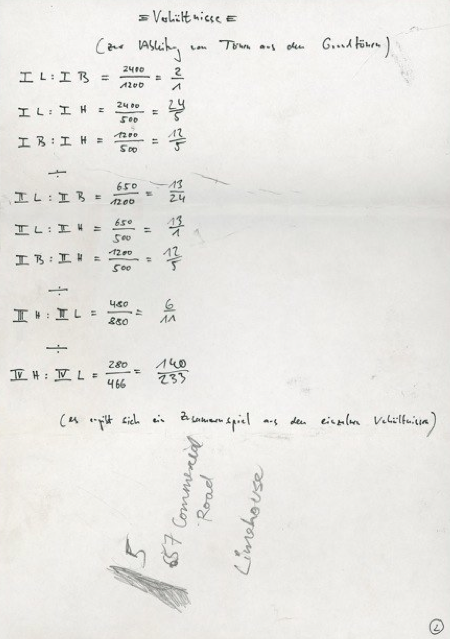 = Verhältnisse =
(zur Ableitung von Tönen aus den Grundtönen)
I L : I B = 2400/1200 = 2/1
I L : I H = 2400/500 = 24/5
I B : I H = 1200/500 = 12/5
÷
II L : II B = 650/1200 = 13/24
II L : II H = 650/500 = 13/1
II B : II H = 1200/500 = 12/5
÷
III H : III L = 480/880 = 6/11
÷
IV H : IV L = 280/466 = 140/233
(es ergibt sich ein Zusammenspiel aus den einzelnen Verhältnissen)
5
657 Commercial
Road
Limehouse
2